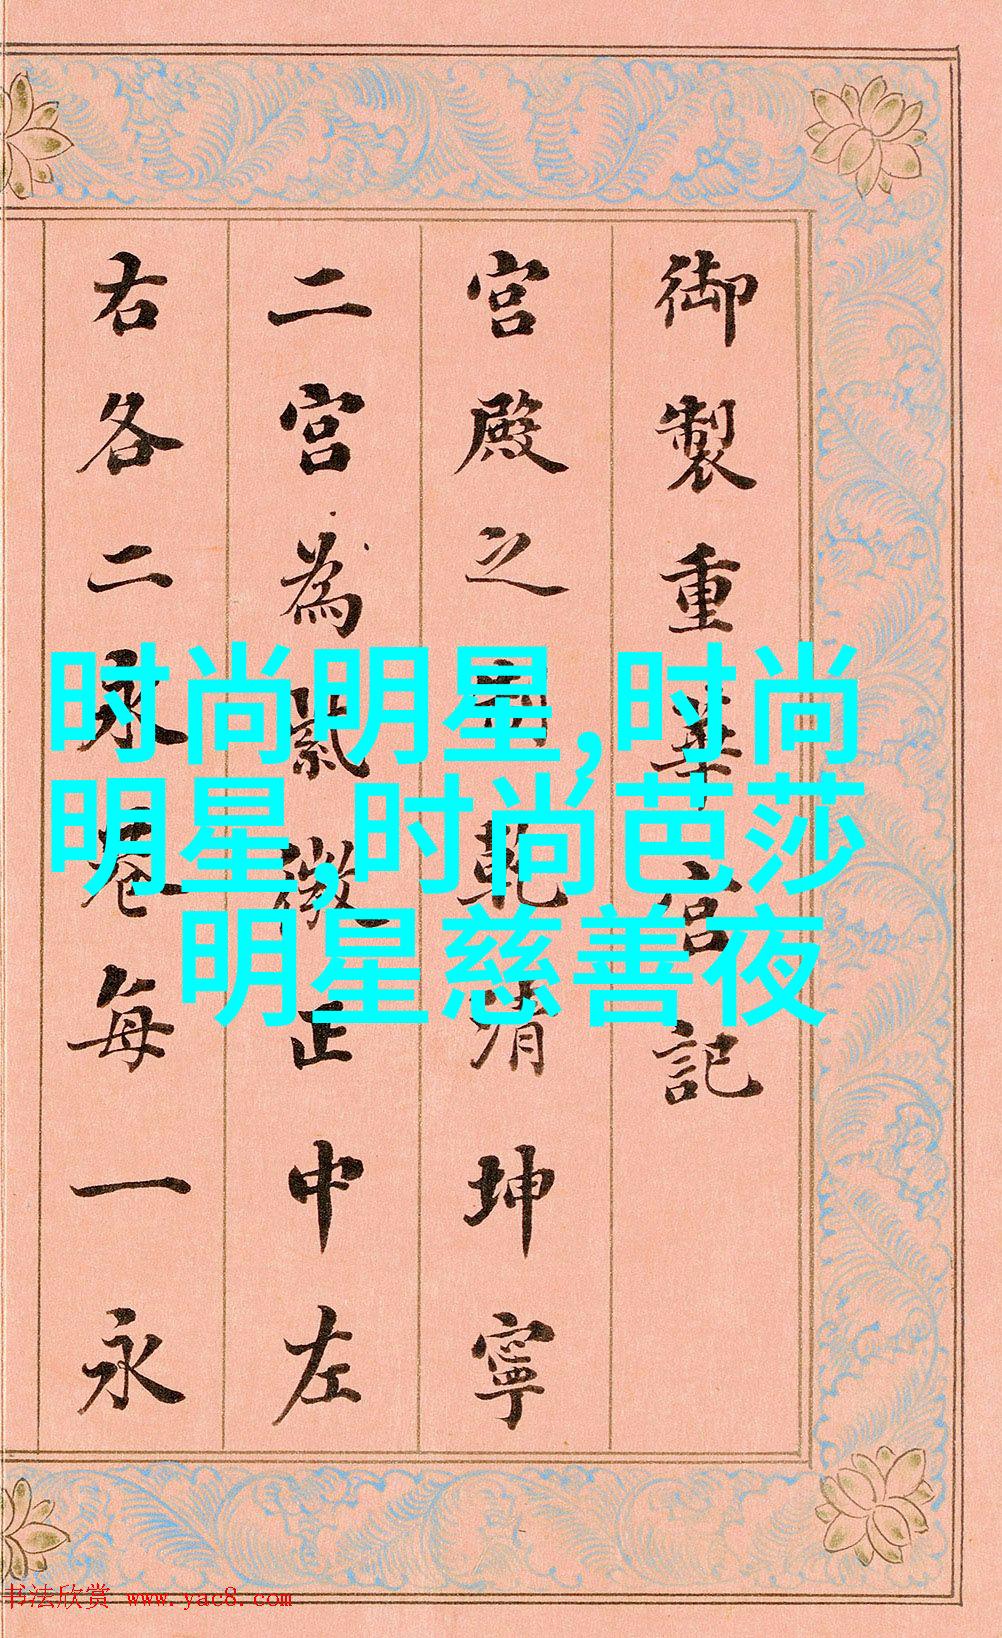 御製重華宮記
宮殿之制乾清坤寧
二宮為紫微正中左
右各二永巷每一永
时尚明星,时尚
明星,时尚芭莎
明星慈善夜
书法欣赏 www.yac8.com